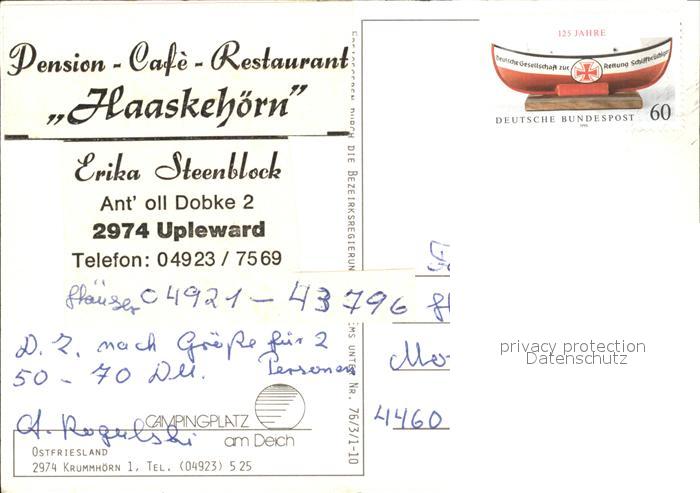 Pension - Cafè - Restaurant
„Haaskehörn"
Erika Steenblock
Ant' oll Dobke 2
2974 Upleward
Telefon: 04923 / 7569
Häuser 04921 - 43796
D. Z. nach Größe für 2
50 - 70 DM. Personen
A. Rogulski
CAMPINGPLATZ
am Deich
OSTFRIESLAND
2974 KRUMMHÖRN 1, TEL. (04923) 5 25
DURCH DIE BEZIRKSREGIERUNG
EMS UNTER NR. 76/3/1-10
125 JAHRE
Deutsche Gesellschaft zur Rettung Schiffbrüchiger
DEUTSCHE BUNDESPOST 60
1990
4460
privacy protection
Datenschutz